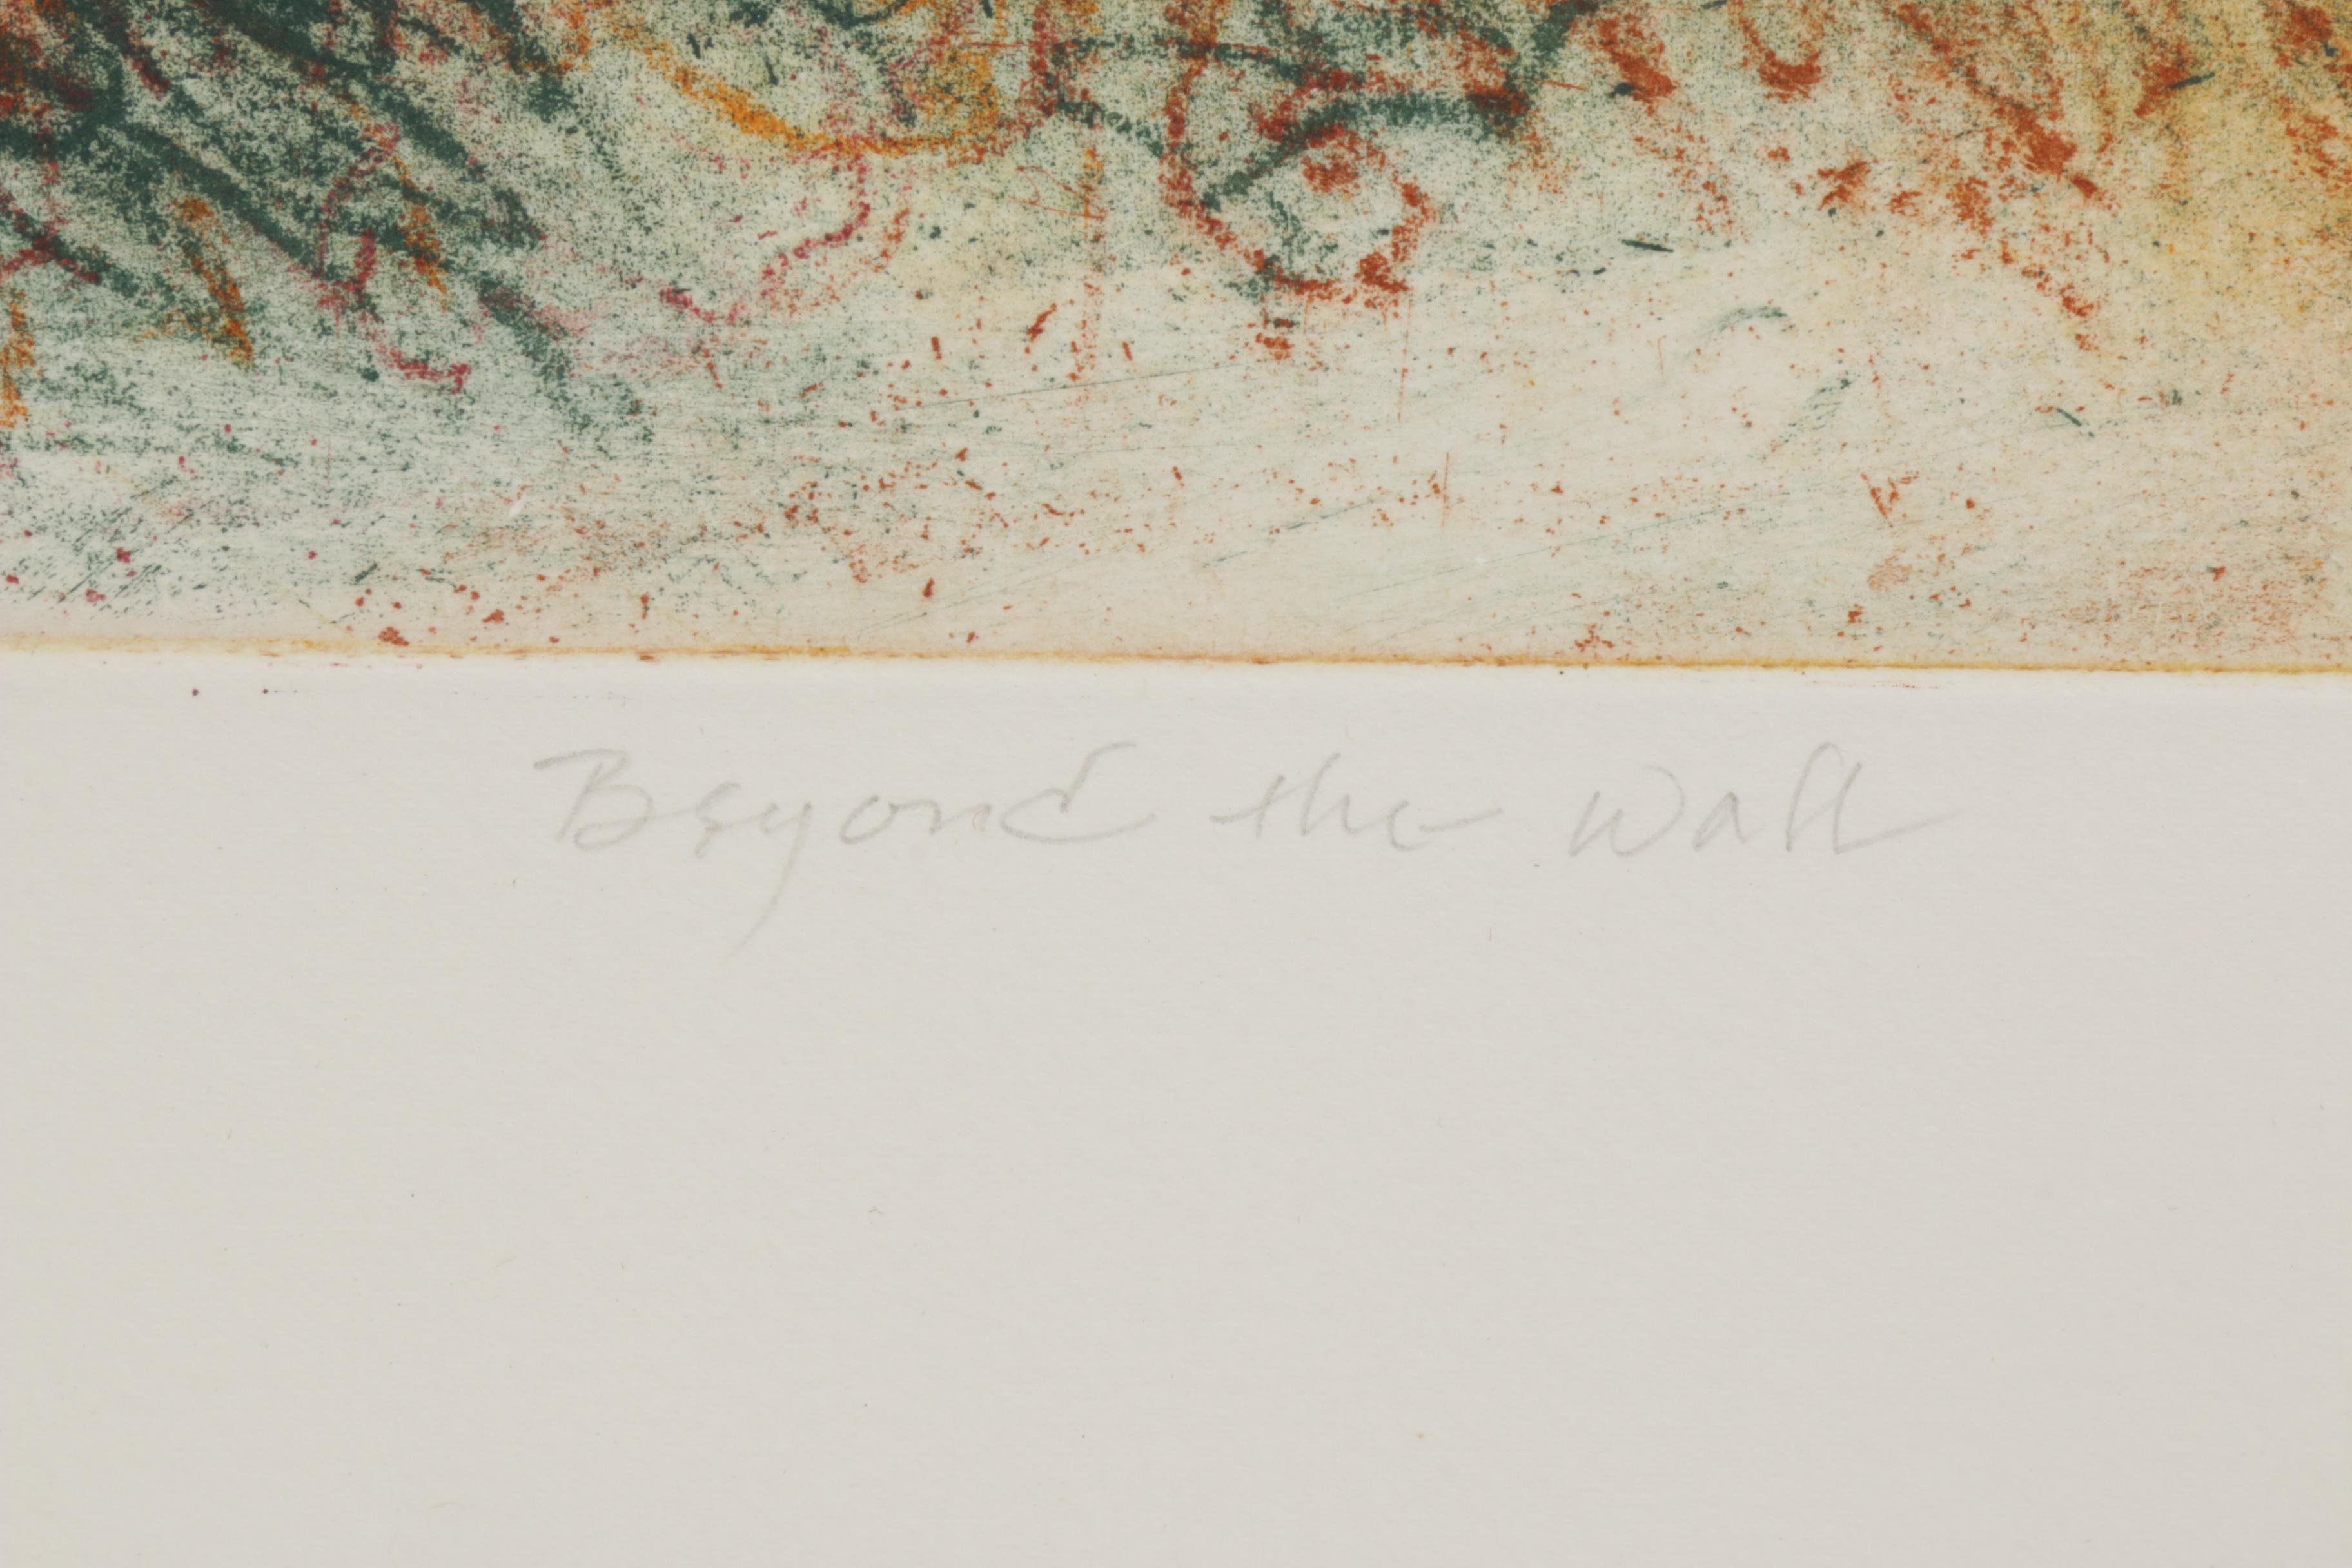 Beyond the Wall